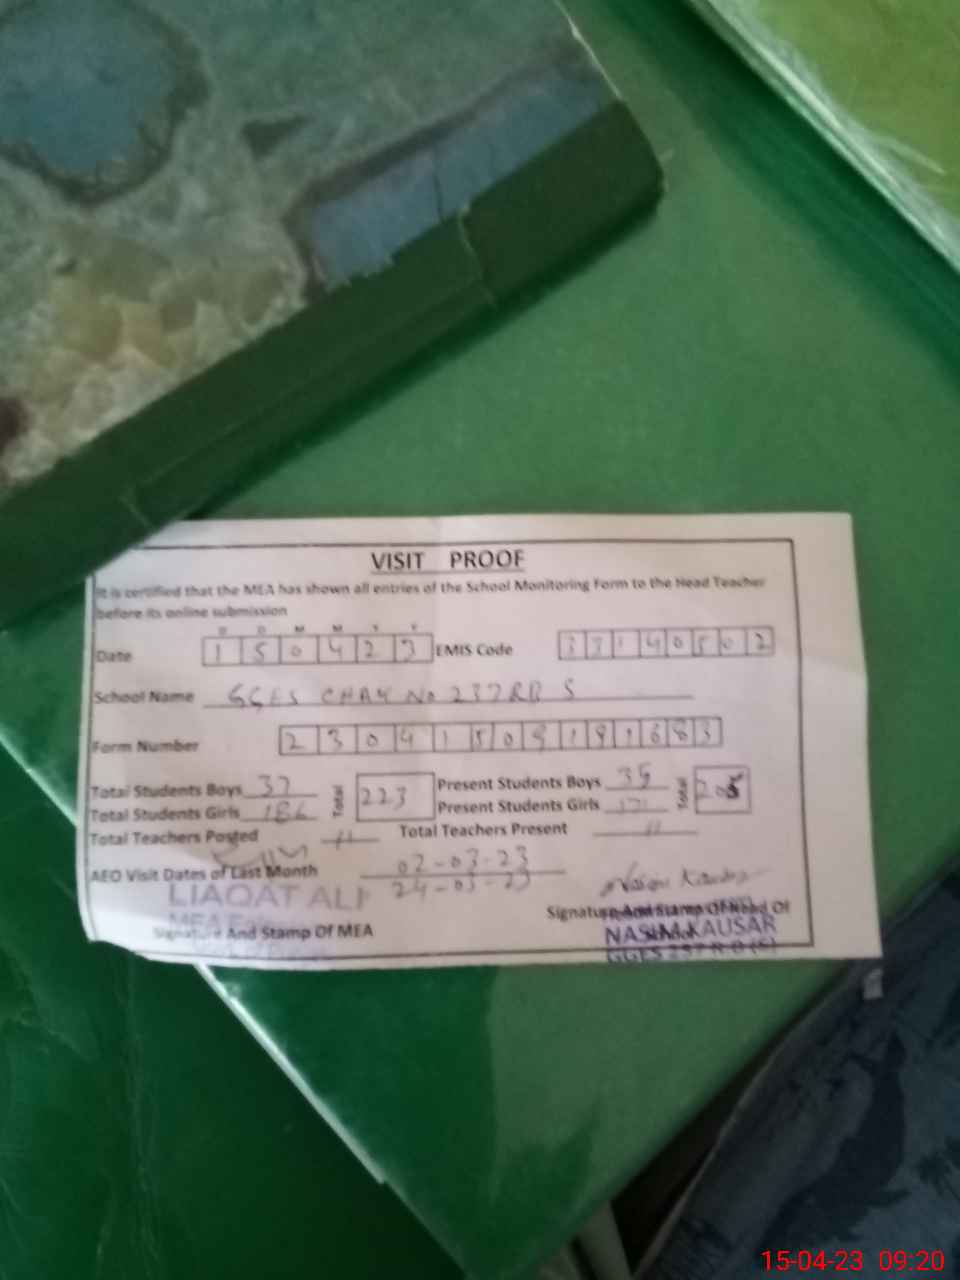 VISIT PROOF
It is certified that the MEA has shown all entries of the School Monitoring Form to the Head Teacher
before its online submission
D D M M Y Y
Date 1 5 0 4 2 3 EMIS Code 3 3 1 4 0 5 0 2
School Name GGES CHAK No 237 RB S
Form Number 2 3 0 4 1 5 0 9 1 9 1 6 8 3
Total Students Boys 37 Total 223 Present Students Boys 35 Total 205
Total Students Girls 186 Present Students Girls
Total Teachers Posted 11 Total Teachers Present 11
AEO Visit Dates of Last Month 02-03-23
24-03-23
LIAQAT ALI
MEA
Signature And Stamp Of MEA
Nasim Kausar
Signature And Stamp Of Head Of
School
NASIM KAUSAR
GGES 237 R.B (S)
15-04-23 09:20